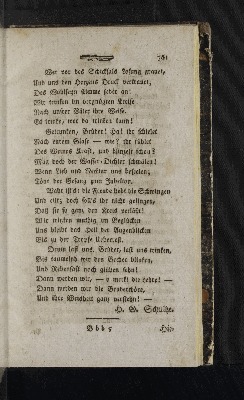 761
Wer vor des Schicksals Losung grauet,
Und uns den Herzens Druck vertrauet,
Des Wohlseyn stimme jeder an!
Wir trinken im vergnügten Kreise
Nach unsrer Väter ihre Weise.
Es trinke, wer da trinken kann!
Getrunken, Brüder! Ha! ihr schielet
Nach eurem Glase — wie? ihr fühlet
Des Weines Kraft, und hörtet schon?
Mag doch der Wasser-Dichter schmälen!
Wenn Lieb und Nektar uns beseelen;
Tönt der Gesang zum Jubelton.
Wahr ists: die Freude hebt die Schwingen
Und eilt; doch soll's ihr nicht gelingen,
Daß sie so gern den Kreis verläßt!
Wir trinken muthig im Beglücken
Und bleibt das Heil der Augenblicken
Bis zu der Tropfe Ueberrest.
Drum laßt uns, Brüder, laßt uns trinken,
Bis taumelnd wir den Becher winken,
Und Rebensaft noch glühen sehn!
Dann werden wir, — o merkt die Lehre! —
Dann werden wir die Bruderchöre,
Und ihre Weisheit ganz verstehn! —
H. G. Schulze.
Bbb 5
Hin-